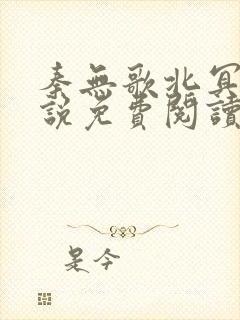 秦無歌北冥
說免費閱讀
是今